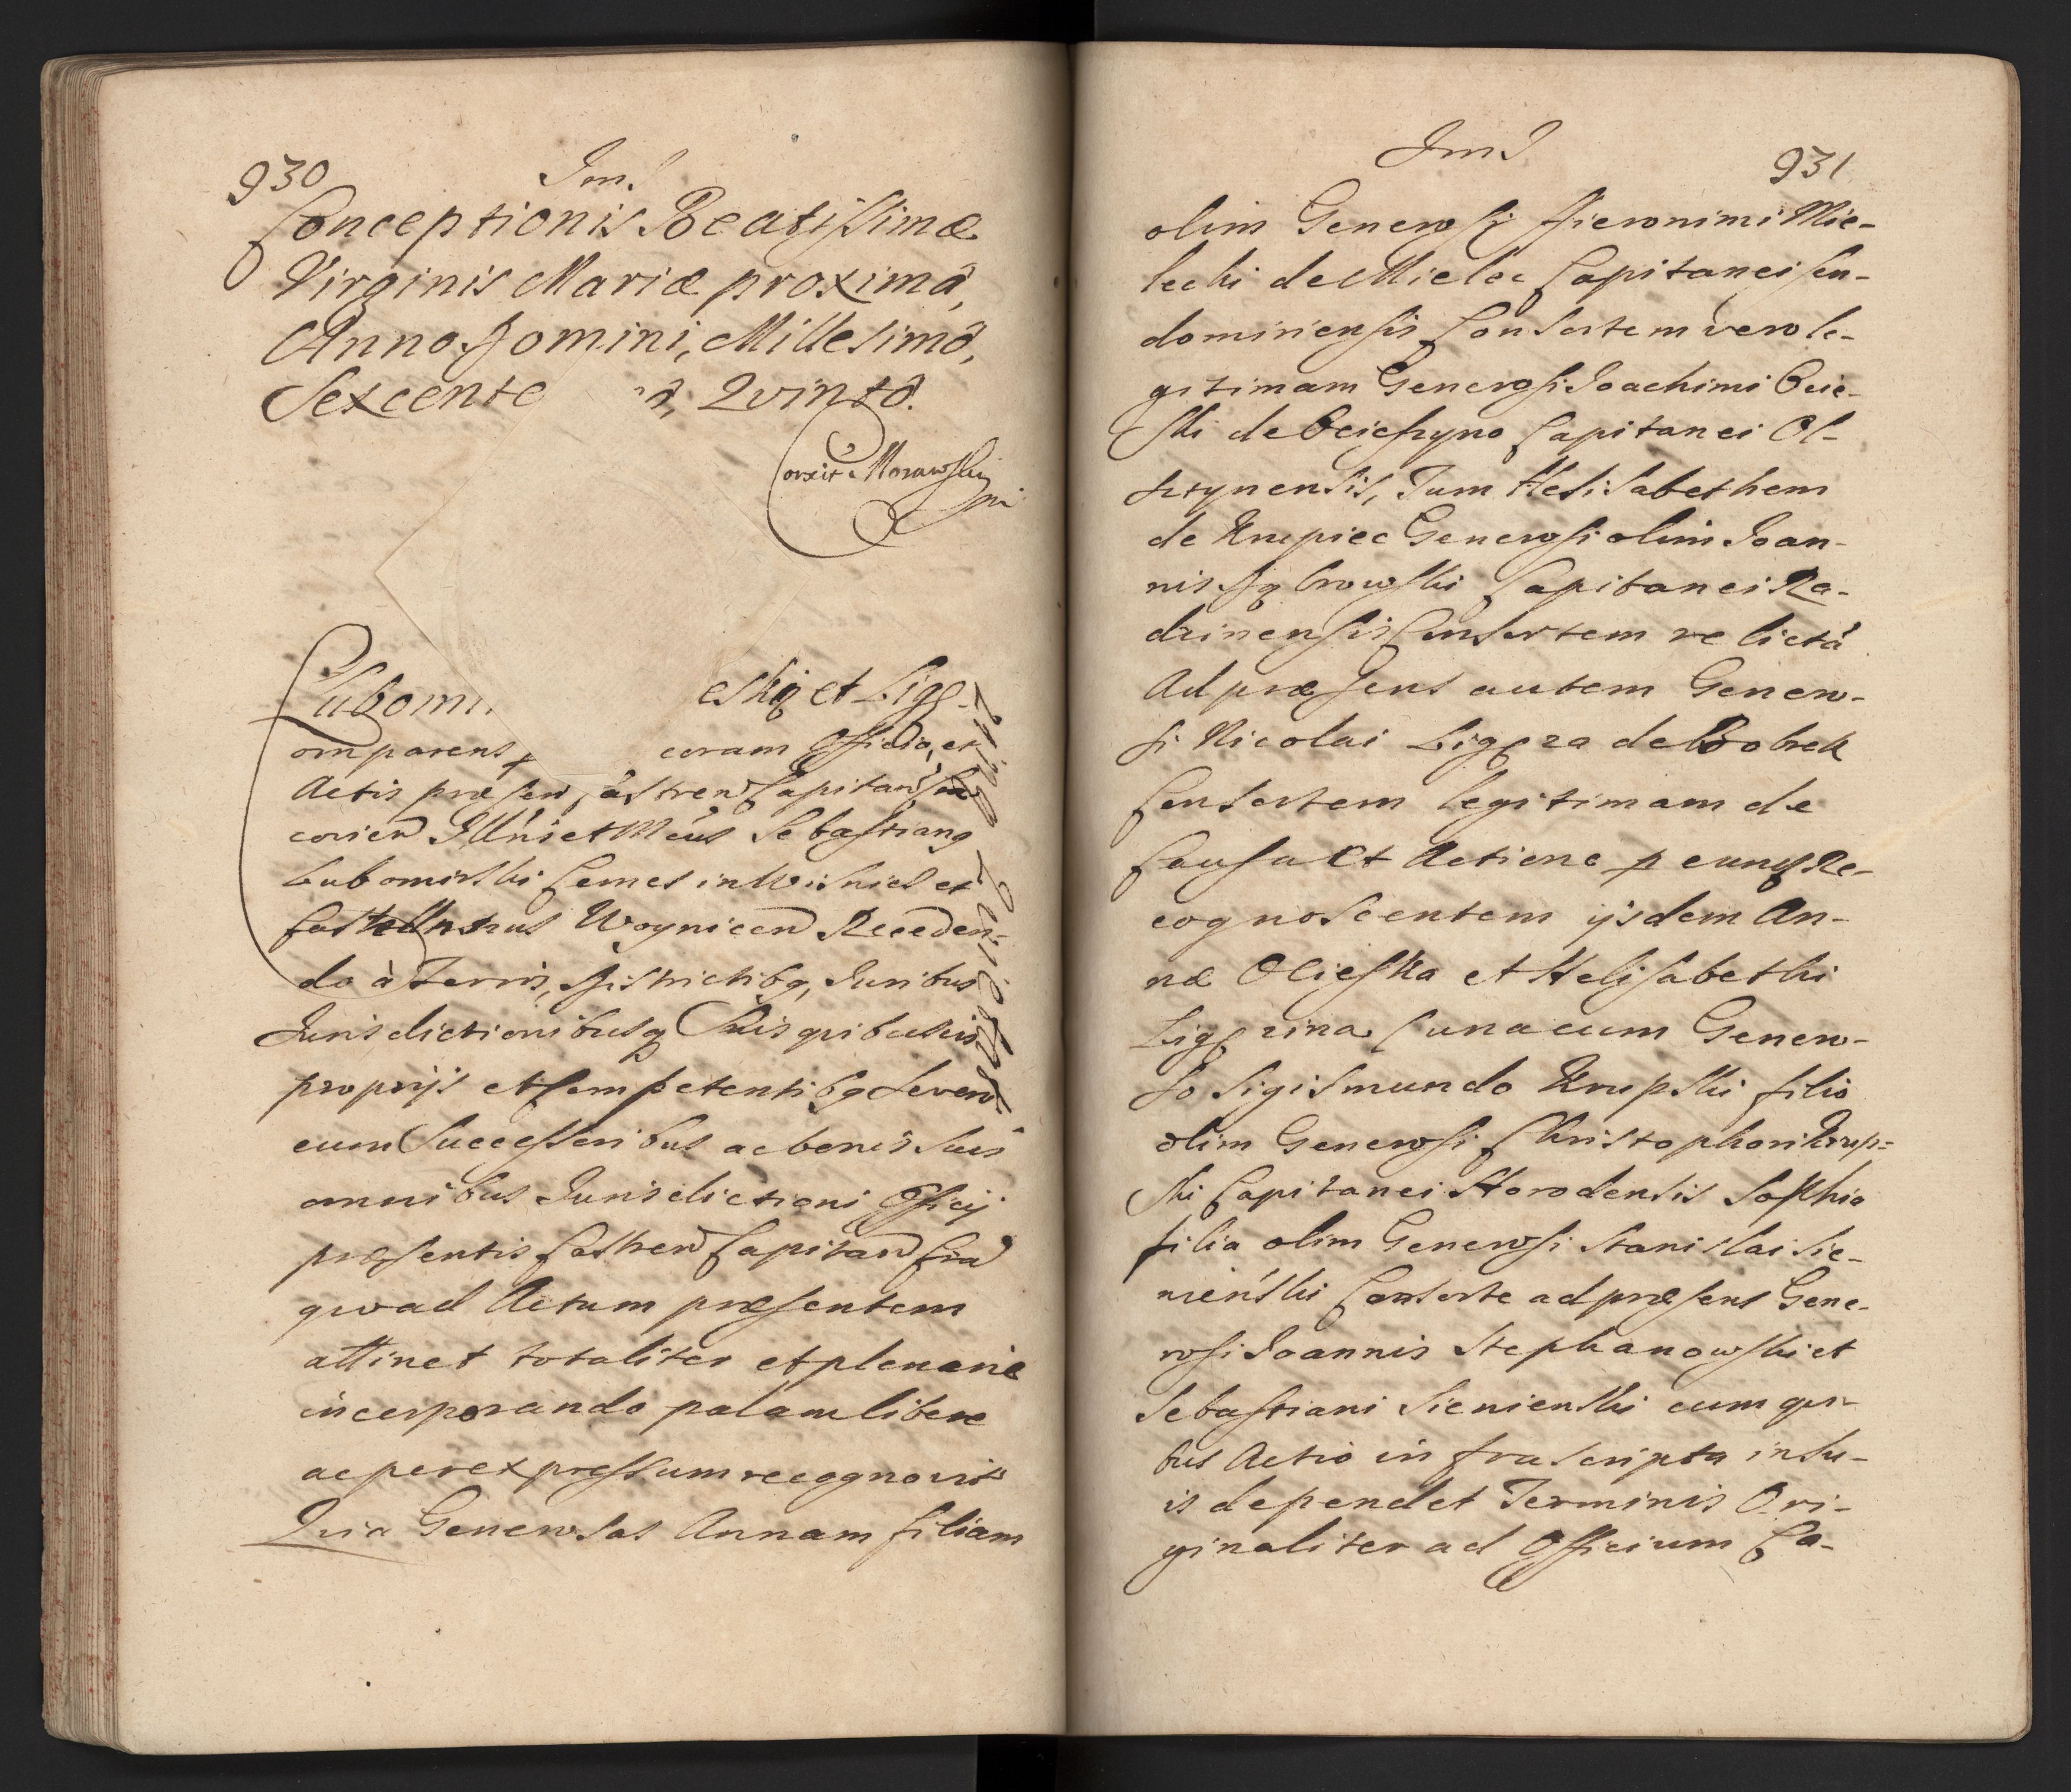 930
Conceptionis Beatissimæ
Virginis Mariæ proximâ,
Anno Domini, Millesimô,
Sexcente ô, Qvintô.
Lubomi eskiȷ et Ligę-
omparens coram Officio, et
Actis præsen, Castren Capitan
covien Illnis et Mcus Sebastiang
Lubomirski Comes in Wisnicz et
Castellanus Woynicen Receden-
do à Terris, Districtibg, Juribus
Jurisdictionibusq Suis quibusuis
proprijs et Competentibg Seven
cum Successoribus ac bonis suis
omnibus Jurisdictioni Officij
præsentis Castren Capitan Crac
quo ad Actum præsentem
attinet totaliter et plenarie
incorporando palam libere
ac per expressum recognovit
Quia Generosas Annam filiam
931
olim Generosi Hieronimi Mie-
lecki de Mielec Capitanei San-
domiriensis Consortem vero le-
gitimam Generosi Joachimi Ocie-
ski de Ociessyno Capitanei Ol-
sztynensis, Tum Helisabethem
de Krupiec Generosi olim Joan-
nis Dębrowski Capitanei Ra-
dzinensis Consortem relictã
Ad præsens autem Genero-
si Nicolai Ligęza de Bobrek
Consortem legitimam de
Causa et Actione p eung Re-
cognoscentem ijsdem An-
næ Ociesska et Helisabethi
Ligęzina una cum Genero-
so Sigismundo Krupski filio
olim Generosi Christophori Krup-
ski Capitanei Horodensis Sophia
filia olim Generosi Stanislai Sie-
nieński Consorte ad præsens Gene-
rosi Joannis Stephanowski et
Sebastiani Sienienski cum qui-
bus Actio infrascripta in su-
is dependet Terminis Ori-
ginaliter ad Officium Ca-